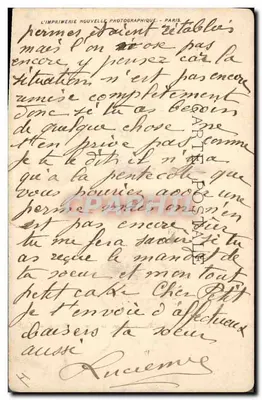 L'IMPRIMERIE NOUVELLE PHOTOGRAPHIQUE - PARIS
permes étaient rétablis
mais l'on ose pas
encore y pensez car la
situation n'est pas encore
remise complètement
donc si tu as besoin
de quelque chose ne
t'en prive pas comme
je te dit il n'y a
qu'à la pentecote que
vous pouriez avoir une
perme mais on n'en
est pas encore sur
tu me fera savoir si tu
as reçue le mandat de
ta soeur et mon tout
petit cake Cher Petit
je t'envoie d'affectueux
baisers ta soeur
aussi
Lucienne
CARTE POSTALE